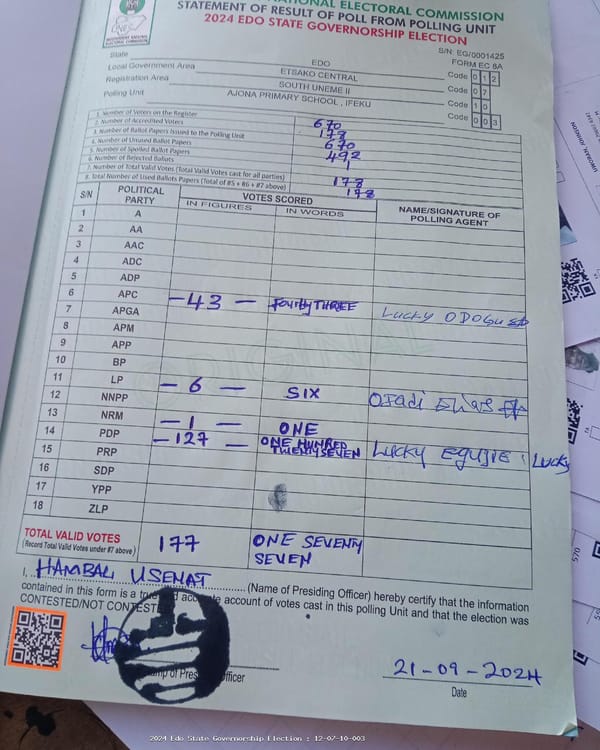 INDEPENDENT NATIONAL ELECTORAL COMMISSION
STATEMENT OF RESULT OF POLL FROM POLLING UNIT
2024 EDO STATE GOVERNORSHIP ELECTION
S/N: EG/0001425
FORM EC 8A
State EDO Code 0 1 2
Local Government Area ETSAKO CENTRAL Code 0 7
Registration Area SOUTH UNEME II Code 1 0
Polling Unit AJONA PRIMARY SCHOOL , IFEKU Code 0 0 3
1. Number of Voters on the Register 670
2. Number of Accredited Voters 178
3. Number of Ballot Papers Issued to the Polling Unit 670
4. Number of Unused Ballot Papers 492
5. Number of Spoiled Ballot Papers
6. Number of Rejected Ballots 1
7. Number of Total Valid Votes (Total Valid Votes cast for all parties) 178
8. Total Number of Used Ballots Papers (Total of #5 + #6 + #7 above) 178
S/N POLITICAL PARTY VOTES SCORED NAME/SIGNATURE OF POLLING AGENT
IN FIGURES IN WORDS
1 A
2 AA
3 AAC
4 ADC
5 ADP
6 APC -43- Fourty THREE Lucky ODOGU
7 APGA
8 APM
9 APP
10 BP
11 LP -6- SIX
12 NNPP
13 NRM -1- ONE
14 PDP -127- ONE HUNDRED TWENTY SEVEN Lucky Egujie Lucky
15 PRP
16 SDP
17 YPP
18 ZLP
TOTAL VALID VOTES 177 ONE SEVENTY SEVEN
(Record Total Valid Votes under #7 above)
I, HAMBALI USENAT (Name of Presiding Officer) hereby certify that the information
contained in this form is a true and accurate account of votes cast in this polling Unit and that the election was
CONTESTED/NOT CONTESTED
21-09-2024
Date
2024 Edo State Governorship Election : 12-07-10-003